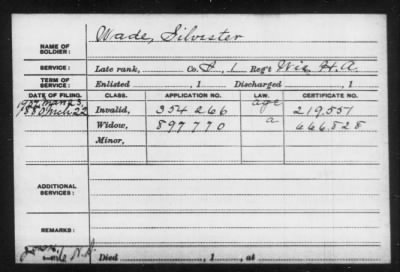 NAME OF SOLDIER: Wade, Silvester
SERVICE: Late rank, Co. 1 Reg't Wis. H.A.
TERM OF SERVICE: Enlisted , 1 Discharged , 1
DATE OF FILING. CLASS. APPLICATION NO. LAW. CERTIFICATE NO.
1880 Mch 22 Invalid, 354 266 age 219.551
Widow, 897 770 a 666.828
Minor,
ADDITIONAL SERVICES:
REMARKS:
Died , 1 , at